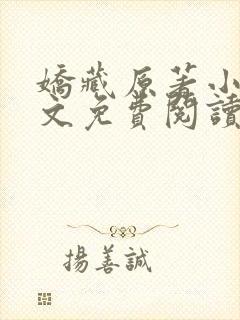 嬌藏原著小
文免費閱讀
揚善誠